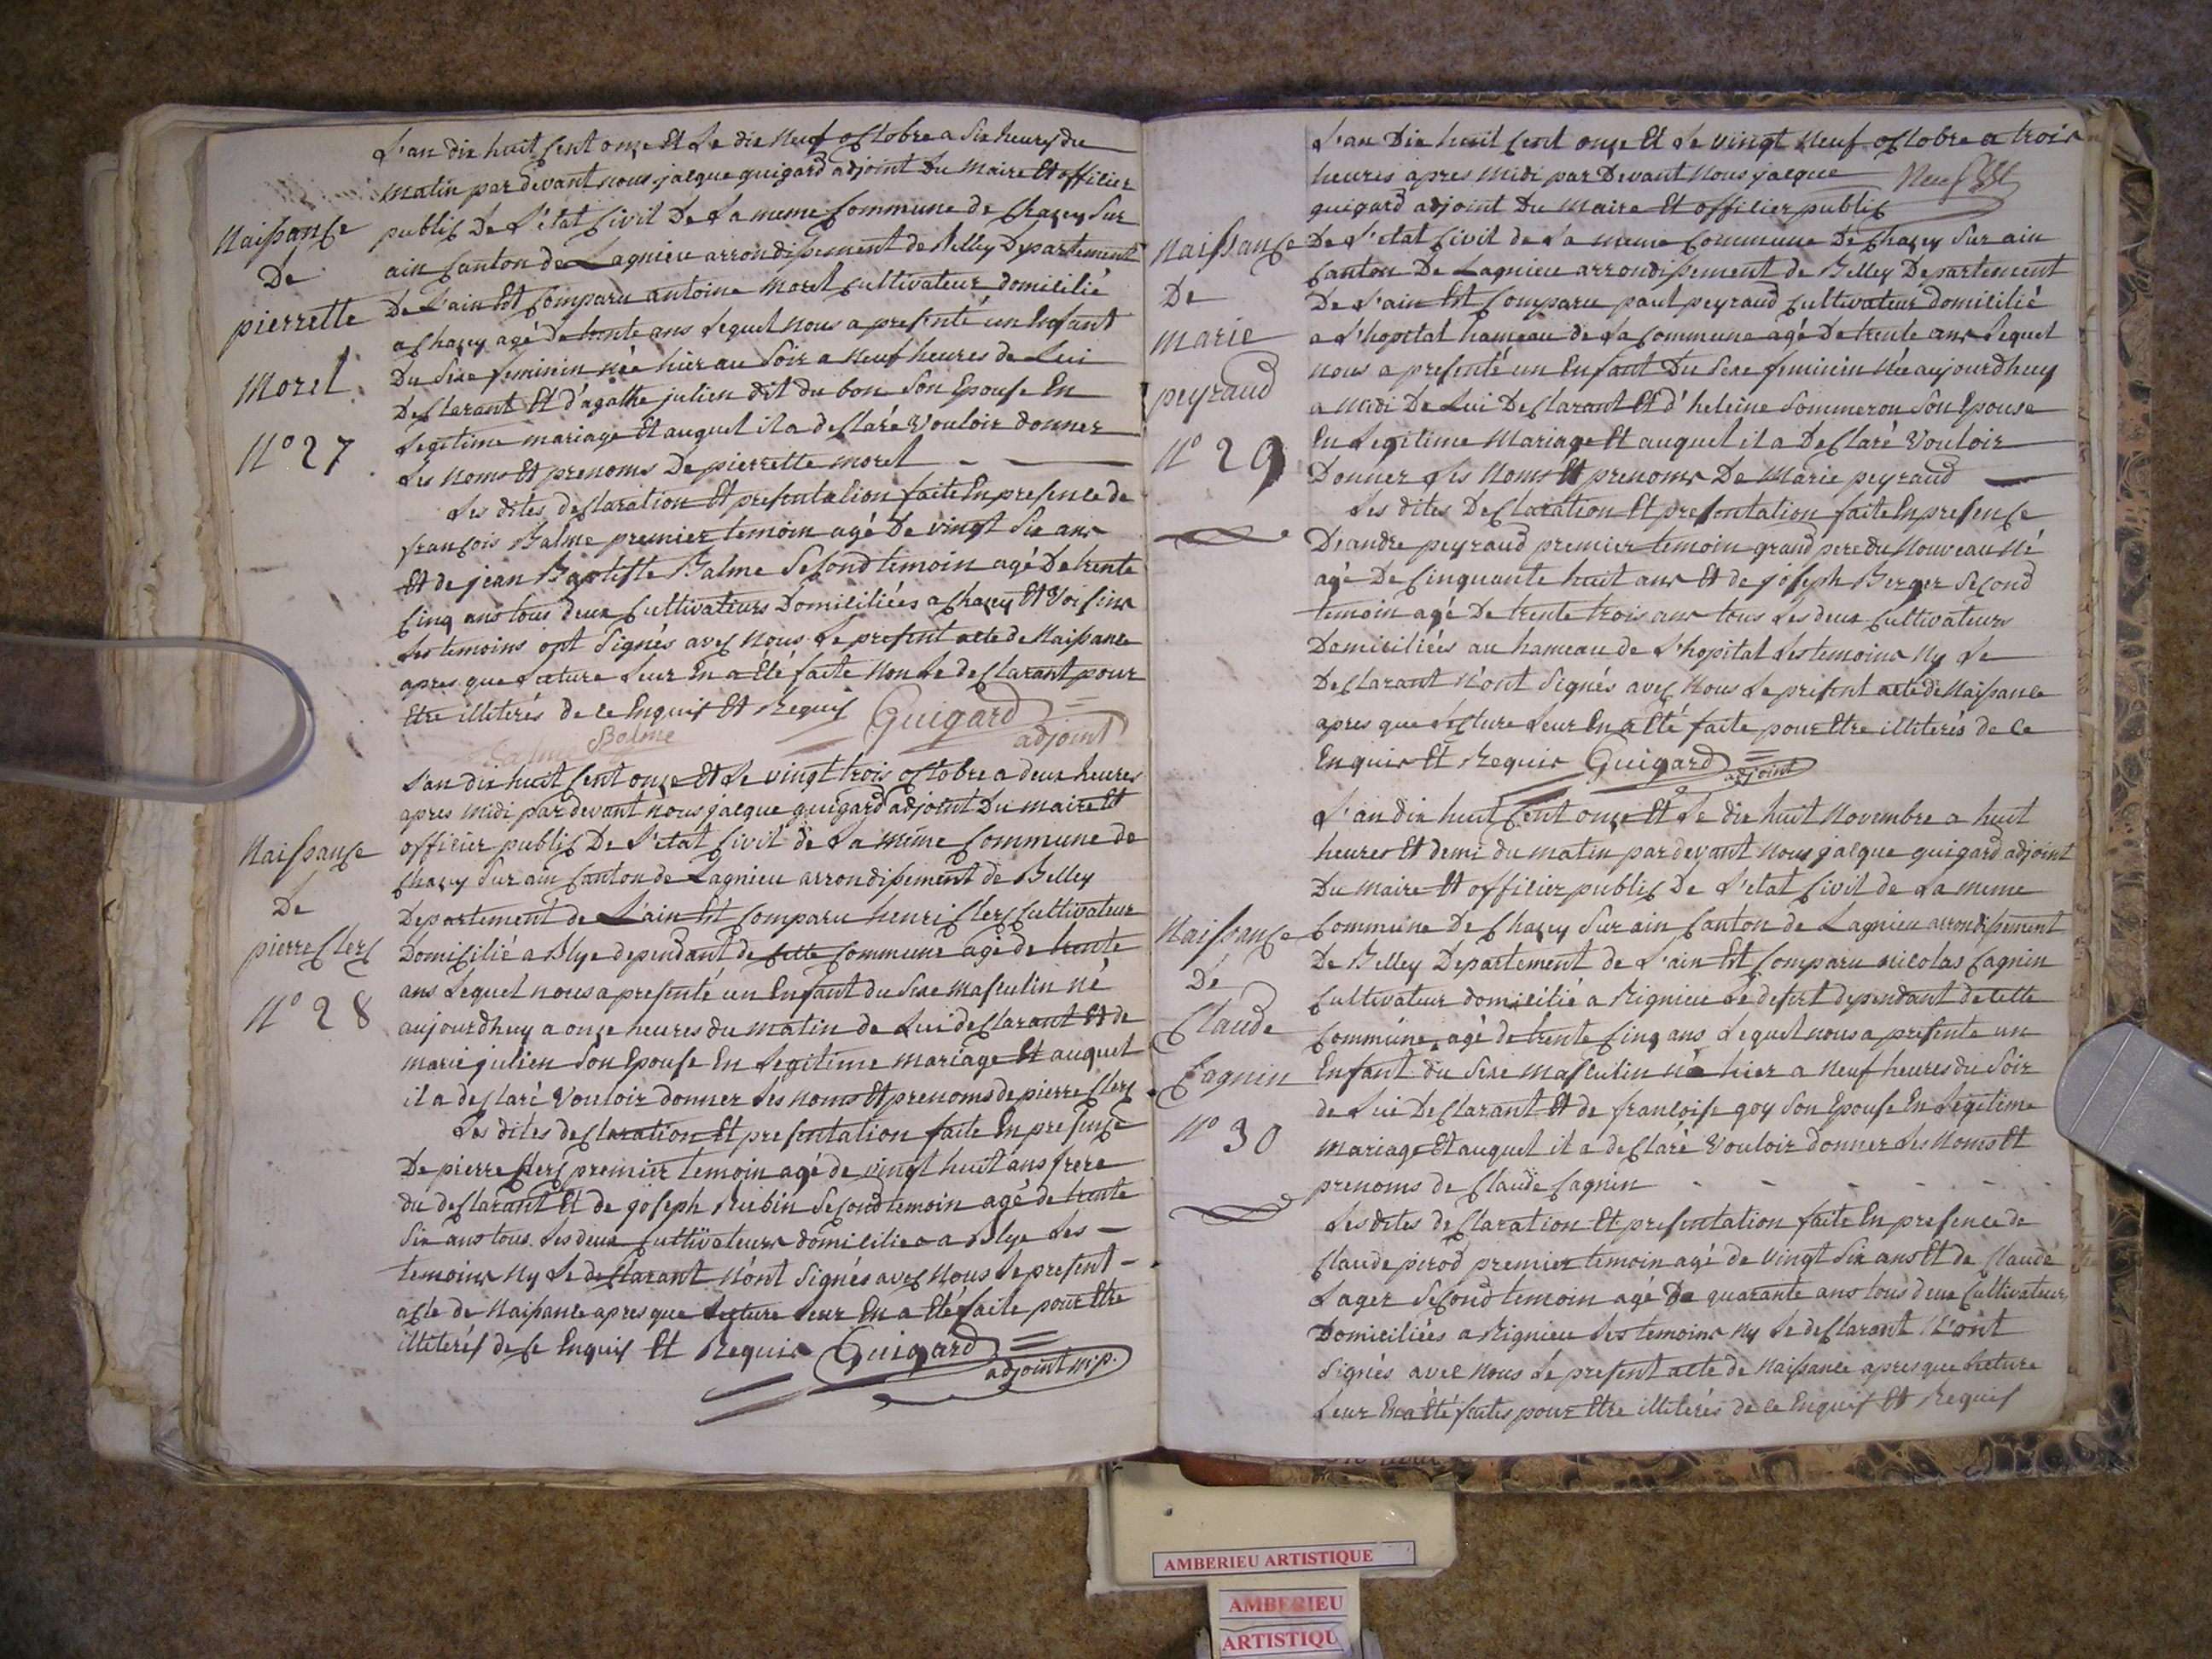 L'an dix huit Cent onze Et Le dix Neuf octobre a Six heures du
matin par devant nous jacque guigard adjoint Du maire Et officier
public De L'état Civil De La meme Commune de Chazey Sur
ain Canton de Lagnieu arrondissement de Belley Departement
De L'ain Est Comparu antoine morel Cultivateur domicilié
a Chazey agé de trente ans Lequel nous a presenté un Enfant
Du Sexe feminin née hier au Soir a neuf heures de Lui
Declarant Et d'agathe julien dit du bon Son Epouse En
Legitime mariage Et auquel il a declaré Vouloir donner
Les noms Et prenoms De pierrette morel
Les dites declaration Et presentation faite En presence de
françois Balme premier temoin agé De vingt Six ans
Et de jean Baptiste Balme Second temoin agé De trente
Cinq ans tous deux Cultivateurs Domiciliées a Chazey Et Voisins
Les temoins ont Signés avec Nous Le present acte de Naissance
apres que Lecture Leur En a Eté faite Non Le declarant pour
Etre illiterés de ce Enquis Et Requis Guigard
adjoint
Balme Balme
Naissance
De
pierrette
Morel
N° 27
L'an dix huit Cent onze Et Le vingt trois octobre a deux heures
apres midi par devant nous jacque guigard adjoint Du maire Et
officier public De L'etat Civil de La même Commune de
Chazey Sur ain Canton de Lagnieu arrondissement de Belley
Departement de L'ain Est Comparu henri Clerc Cultivateur
Domicilié a Blye dependant de Cette Commune agé de trente
ans Lequel nous a presenté un Enfant du Sexe masculin né
aujourdhuy a onze heures du matin de Lui declarant Et de
marie julien Son Epouse En Legitime mariage Et auquel
il a declaré Vouloir donner Les noms Et prenoms de pierre Clerc
Les dites declaration Et presentation faite En presence
De pierre Clerc premier temoin agé de vingt huit ans frere
du declarant Et de joseph Rubin Second temoin agé de trente
Six ans tous Les deux Cultivateurs domiciliees a Blye Les
temoins Ny Le declarant N'ont Signés avec Nous Le present
acte de Naissance apres que Lecture Leur En a Eté faite pour Etre
illiterés de Ce Enquis Et Requis Guigard
adjoint m.p.
Naissance
De
pierre Clerc
N° 28
L'an Dix huit Cent onze Et Le vingt Neuf octobre a trois
heures apres midi par Devant Nous jacque
guigard adjoint Du maire Et officier public
De L'etat Civil de La meme Commune De Chazey Sur ain
Canton De Lagnieu arrondissement de Belley Departement
De L'ain Est Comparu paul peyraud Cultivateur domicilié
a L'hopital hameau de La Commune agé De trente ans Lequel
nous a presenté un Enfant Du Sexe feminin Née aujourdhuy
a midi De Lui Declarant Et d'heleine Sommeron Son Epouse
En Legitime Mariage Et auquel il a Declaré Vouloir
Donner Les Noms Et prenoms De Marie peyraud
Les dites Declaration Et presentation faite En presence
D'andre peyraud premier temoin grand pere du Nouveau Né
agé De Cinquante huit ans Et de joseph Berger Second
temoin agé De trente trois ans tous Les deux Cultivateurs
Domiciliées au hameau de L'hopital Les temoins Ny Le
Declarant N'ont Signés avec Nous Le présent acte de Naissance
apres que Lecture Leur En a Eté faite pour Etre illiterés de Ce
Enquis Et Requis Guigard
adjoint
Naissance
De
marie
peyraud
N° 29
L'an dix huit Cent onze Et Le dix huit Novembre a huit
heures Et demi du matin par devant Nous jacque guigard adjoint
Du maire Et officier public De L'etat Civil de La meme
Commune De Chazey Sur ain Canton de Lagnieu arrondissement
De Belley Departement de L'ain Est Comparu nicolas Cagnin
Cultivateur domicilié a Rignieu Le desert dependant de Cette
Commune, agé de trente Cinq ans Lequel nous a presente un
Enfant du Sexe masculin né hier a Neuf heures du Soir
de Lui Declarant Et de francoise goy Son Epouse En Legitime
mariage Et auquel il a declaré Vouloir donner Les Noms Et
prenoms de Claude Cagnin
Les dites declaration Et presentation faite En presence de
Claude pirod premier temoin agé de Vingt Six ans Et de Claude
Lager Second temoin agé De quarante ans tous deux Cultivateurs
Domiciliées a Rignieu Les temoins Ny Le declarant N'ont
Signés avec nous Le present acte de Naissance apres que Lecture
Leur En a Eté faites pour Etre illiterés de Ce Enquis Et Requis
Naissance
De
Claude
Cagnin
N° 30
AMBERIEU ARTISTIQUE
AMBERIEU
ARTISTIQU